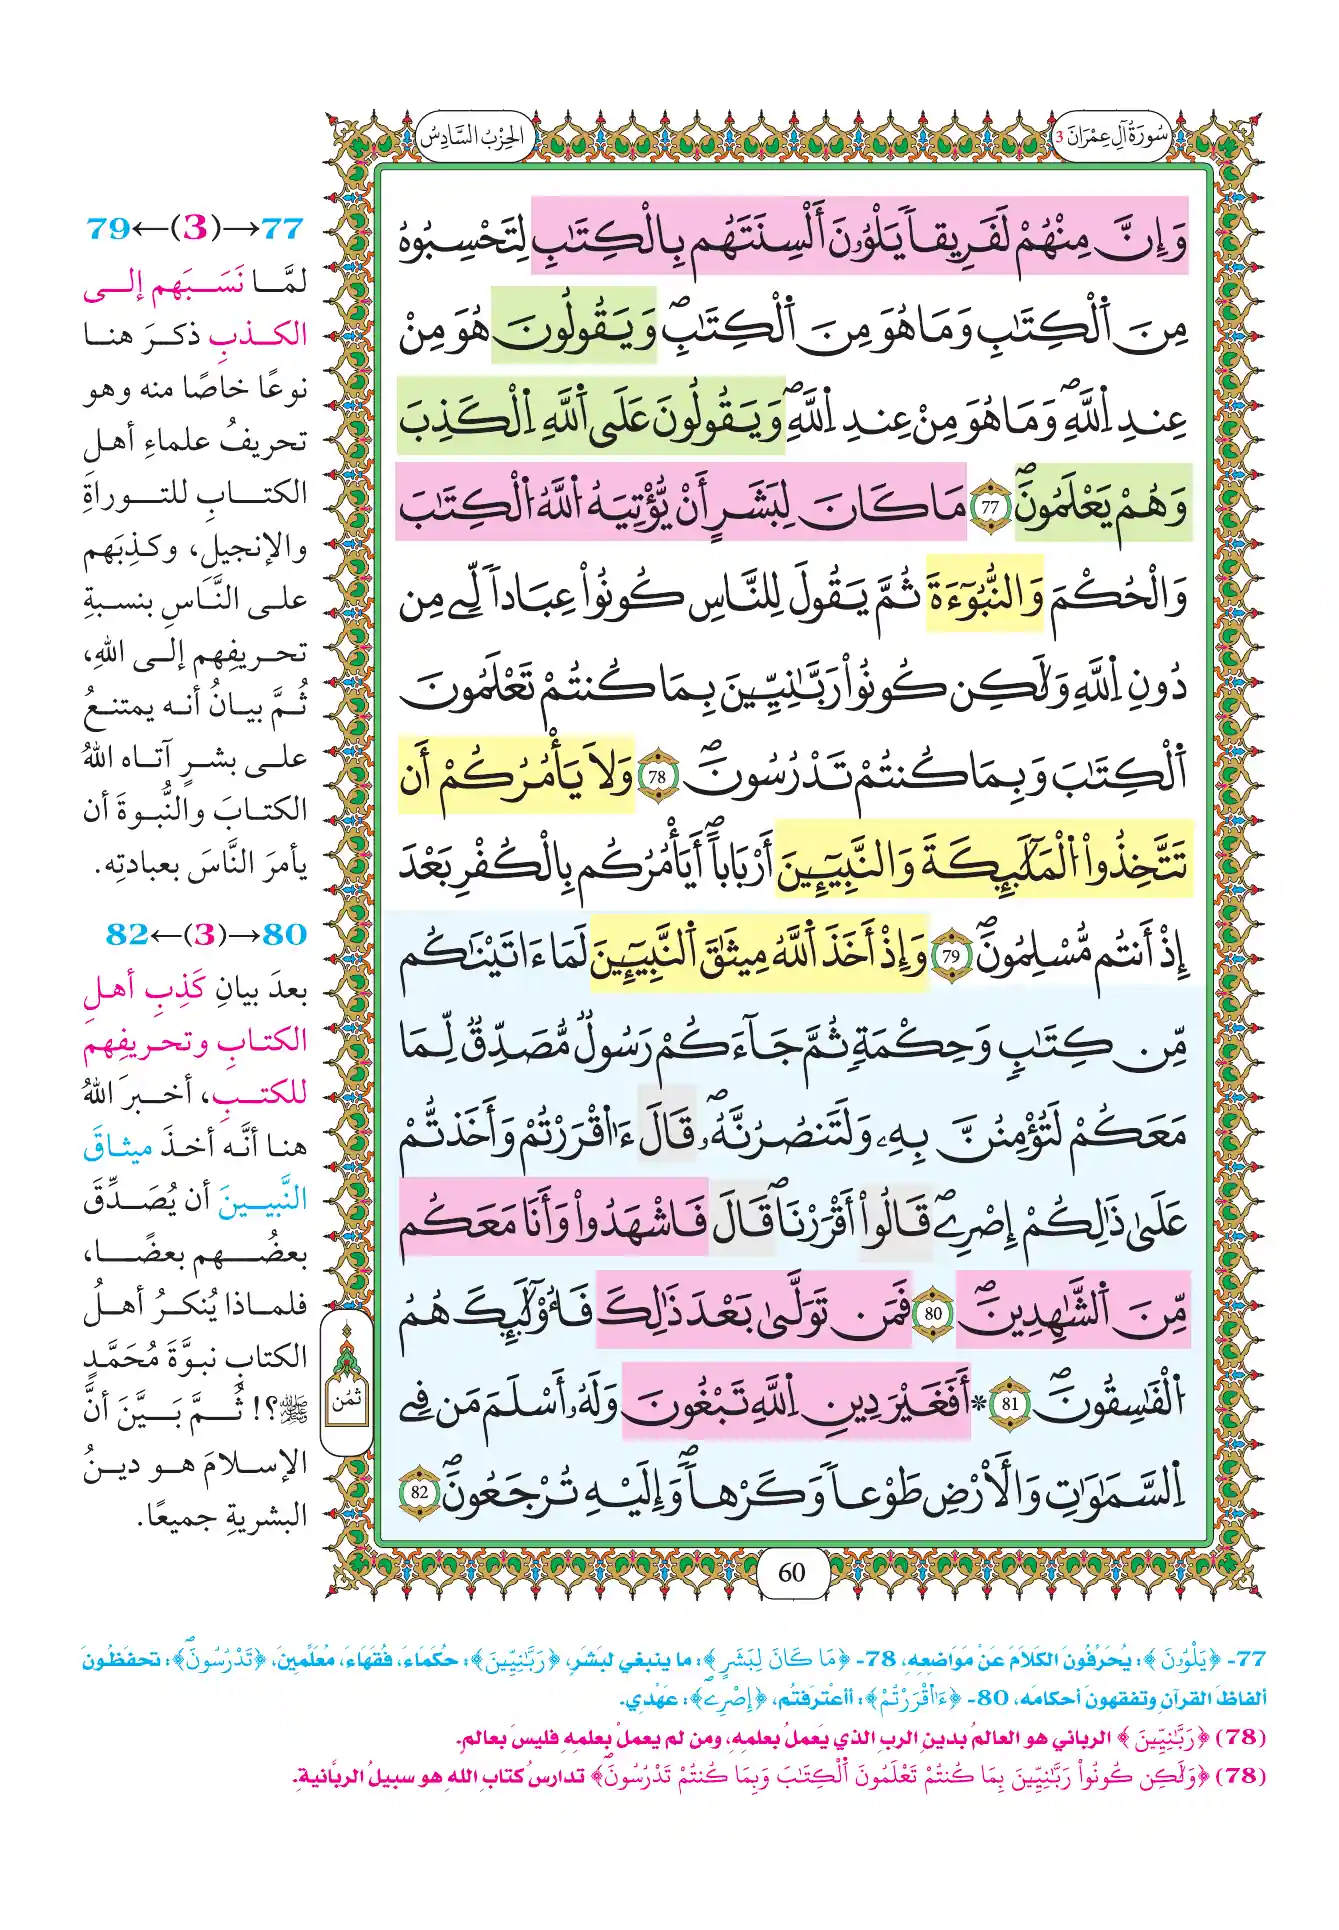 سُورَةُ آلِ عِمْرَانَ 3
الحِزْبُ السَّادِسُ
وَإِنَّ مِنْهُمْ لَفَرِيقاٗ يَلْوُۥنَ أَلْسِنَتَهُم بِالْكِتَٰبِ لِتَحْسِبُوهُ
مِنَ اَ۬لْكِتَٰبِ وَمَا هُوَ مِنَ اَ۬لْكِتَٰبِۖ وَيَقُولُونَ هُوَ مِنْ
عِندِ اِ۬للَّهِۖ وَمَا هُوَ مِنْ عِندِ اِ۬للَّهِۖ وَيَقُولُونَ عَلَى اَ۬للَّهِ اِ۬لْكَذِبَ
وَهُمْ يَعْلَمُونَۖ 77 مَا كَانَ لِبَشَرٍ أَنْ يُّؤْتِيَهُ اُ۬للَّهُ اُ۬لْكِتَٰبَ
وَالْحُكْمَ وَالنُّبُوٓءَةَ ثُمَّ يَقُولَ لِلنَّاسِ كُونُواْ عِبَاداٗ لِّے مِن
دُونِ اِ۬للَّهِ وَلَٰكِن كُونُواْ رَبَّٰنِيِّينَ بِمَا كُنتُمْ تَعْلَمُونَ
اَ۬لْكِتَٰبَ وَبِمَا كُنتُمْ تَدْرُسُونَۖ 78 وَلَا يَأْمُرُكُمْ أَن
تَتَّخِذُواْ اُ۬لْمَلَٰٓئِكَةَ وَالنَّبِيٓـِٕينَ أَرْبَاباًۖ اَيَأْمُرُكُم بِالْكُفْرِ بَعْدَ
إِذْ أَنتُم مُّسْلِمُونَۖ 79 وَإِذْ أَخَذَ اَ۬للَّهُ مِيثَٰقَ اَ۬لنَّبِيٓـِٕينَ لَمَا ءَاتَيْنَٰكُم
مِّن كِتَٰبٍ وَحِكْمَةٍ ثُمَّ جَآءَكُمْ رَسُولٌ مُّصَدِّقٌ لِّمَا
مَعَكُمْ لَتُؤْمِنُنَّ بِهِۦ وَلَتَنصُرُنَّهُۥۖ قَالَ ءَآقْرَرْتُمْ وَأَخَذتُّمْ
عَلَىٰ ذَٰلِكُمْ إِصْرِےۖ قَالُواْ أَقْرَرْنَاۖ قَالَ فَاشْهَدُواْ وَأَنَا مَعَكُم
مِّنَ اَ۬لشَّٰهِدِينَۖ 80 فَمَن تَوَلَّىٰ بَعْدَ ذَٰلِكَ فَأُوْلَٰٓئِكَ هُمُ
اُ۬لْفَٰسِقُونَۖ 81 * أَفَغَيْرَ دِينِ اِ۬للَّهِ تَبْغُونَ وَلَهُۥ أَسْلَمَ مَن فِے
اِ۬لسَّمَٰوَٰتِ وَالْأَرْضِ طَوْعاٗ وَكَرْهاٗۖ وَإِلَيْهِ تُرْجَعُونَۖ 82
60
ثمن
77→(3)←79
لمَّا نَسَبَهم إلى
الكذبِ ذكرَ هنا
نوعًا خاصًا منه وهو
تحريفُ علماءِ أهل
الكتابِ للتوراةِ
والإنجيلِ، وكذِبَهم
على النَّاسِ بنسبةِ
تحريفِهم إلى اللهِ،
ثُمَّ بيانُ أنه يمتنعُ
على بشرٍ آتاه اللهُ
الكتابَ والنُّبوةَ أن
يأمرَ النَّاسَ بعبادتِه.
80→(3)←82
بعدَ بيانِ كَذِبِ أهلِ
الكتابِ وتحريفِهم
للكتبِ، أخبرَ اللهُ
هنا أنَّه أخذَ ميثاقَ
النَّبيينَ أن يُصَدِّقَ
بعضُهم بعضًا،
فلماذا يُنكرُ أهلُ
الكتابِ نبوَّةَ مُحَمَّدٍ
ﷺ؟! ثُمَّ بَيَّنَ أنَّ
الإسلامَ هو دينُ
البشريةِ جميعًا.
77- ﴿يَلْوُۥنَ﴾: يُحَرِّفُونَ الكَلَامَ عَنْ مَوَاضِعِهِ، 78- ﴿مَا كَانَ لِبَشَرٍ﴾: ما ينبغي لبَشَرٍ، ﴿رَبَّٰنِيِّينَ﴾: حُكَمَاءَ، فُقَهَاءَ، مُعَلِّمِينَ، ﴿تَدْرُسُونَۖ﴾: تحفَظُونَ
ألفاظَ القرآنِ وتفقهونَ أحكامَه، 80- ﴿ءَآقْرَرْتُمْ﴾: أاعْترَفتُم، ﴿إِصْرِےۖ﴾: عَهْدِي.
(78) ﴿رَبَّٰنِيِّينَ﴾ الرباني هو العالمُ بدينِ الربِ الذي يَعملُ بعلمِهِ، ومن لم يعملْ بعلمِهِ فليسَ بعالمٍ.
(78) ﴿وَلَٰكِن كُونُواْ رَبَّٰنِيِّينَ بِمَا كُنتُمْ تَعْلَمُونَ اَ۬لْكِتَٰبَ وَبِمَا كُنتُمْ تَدْرُسُونَۖ﴾ تدارسُ كتابِ اللهِ هو سبيلُ الربانيةِ.